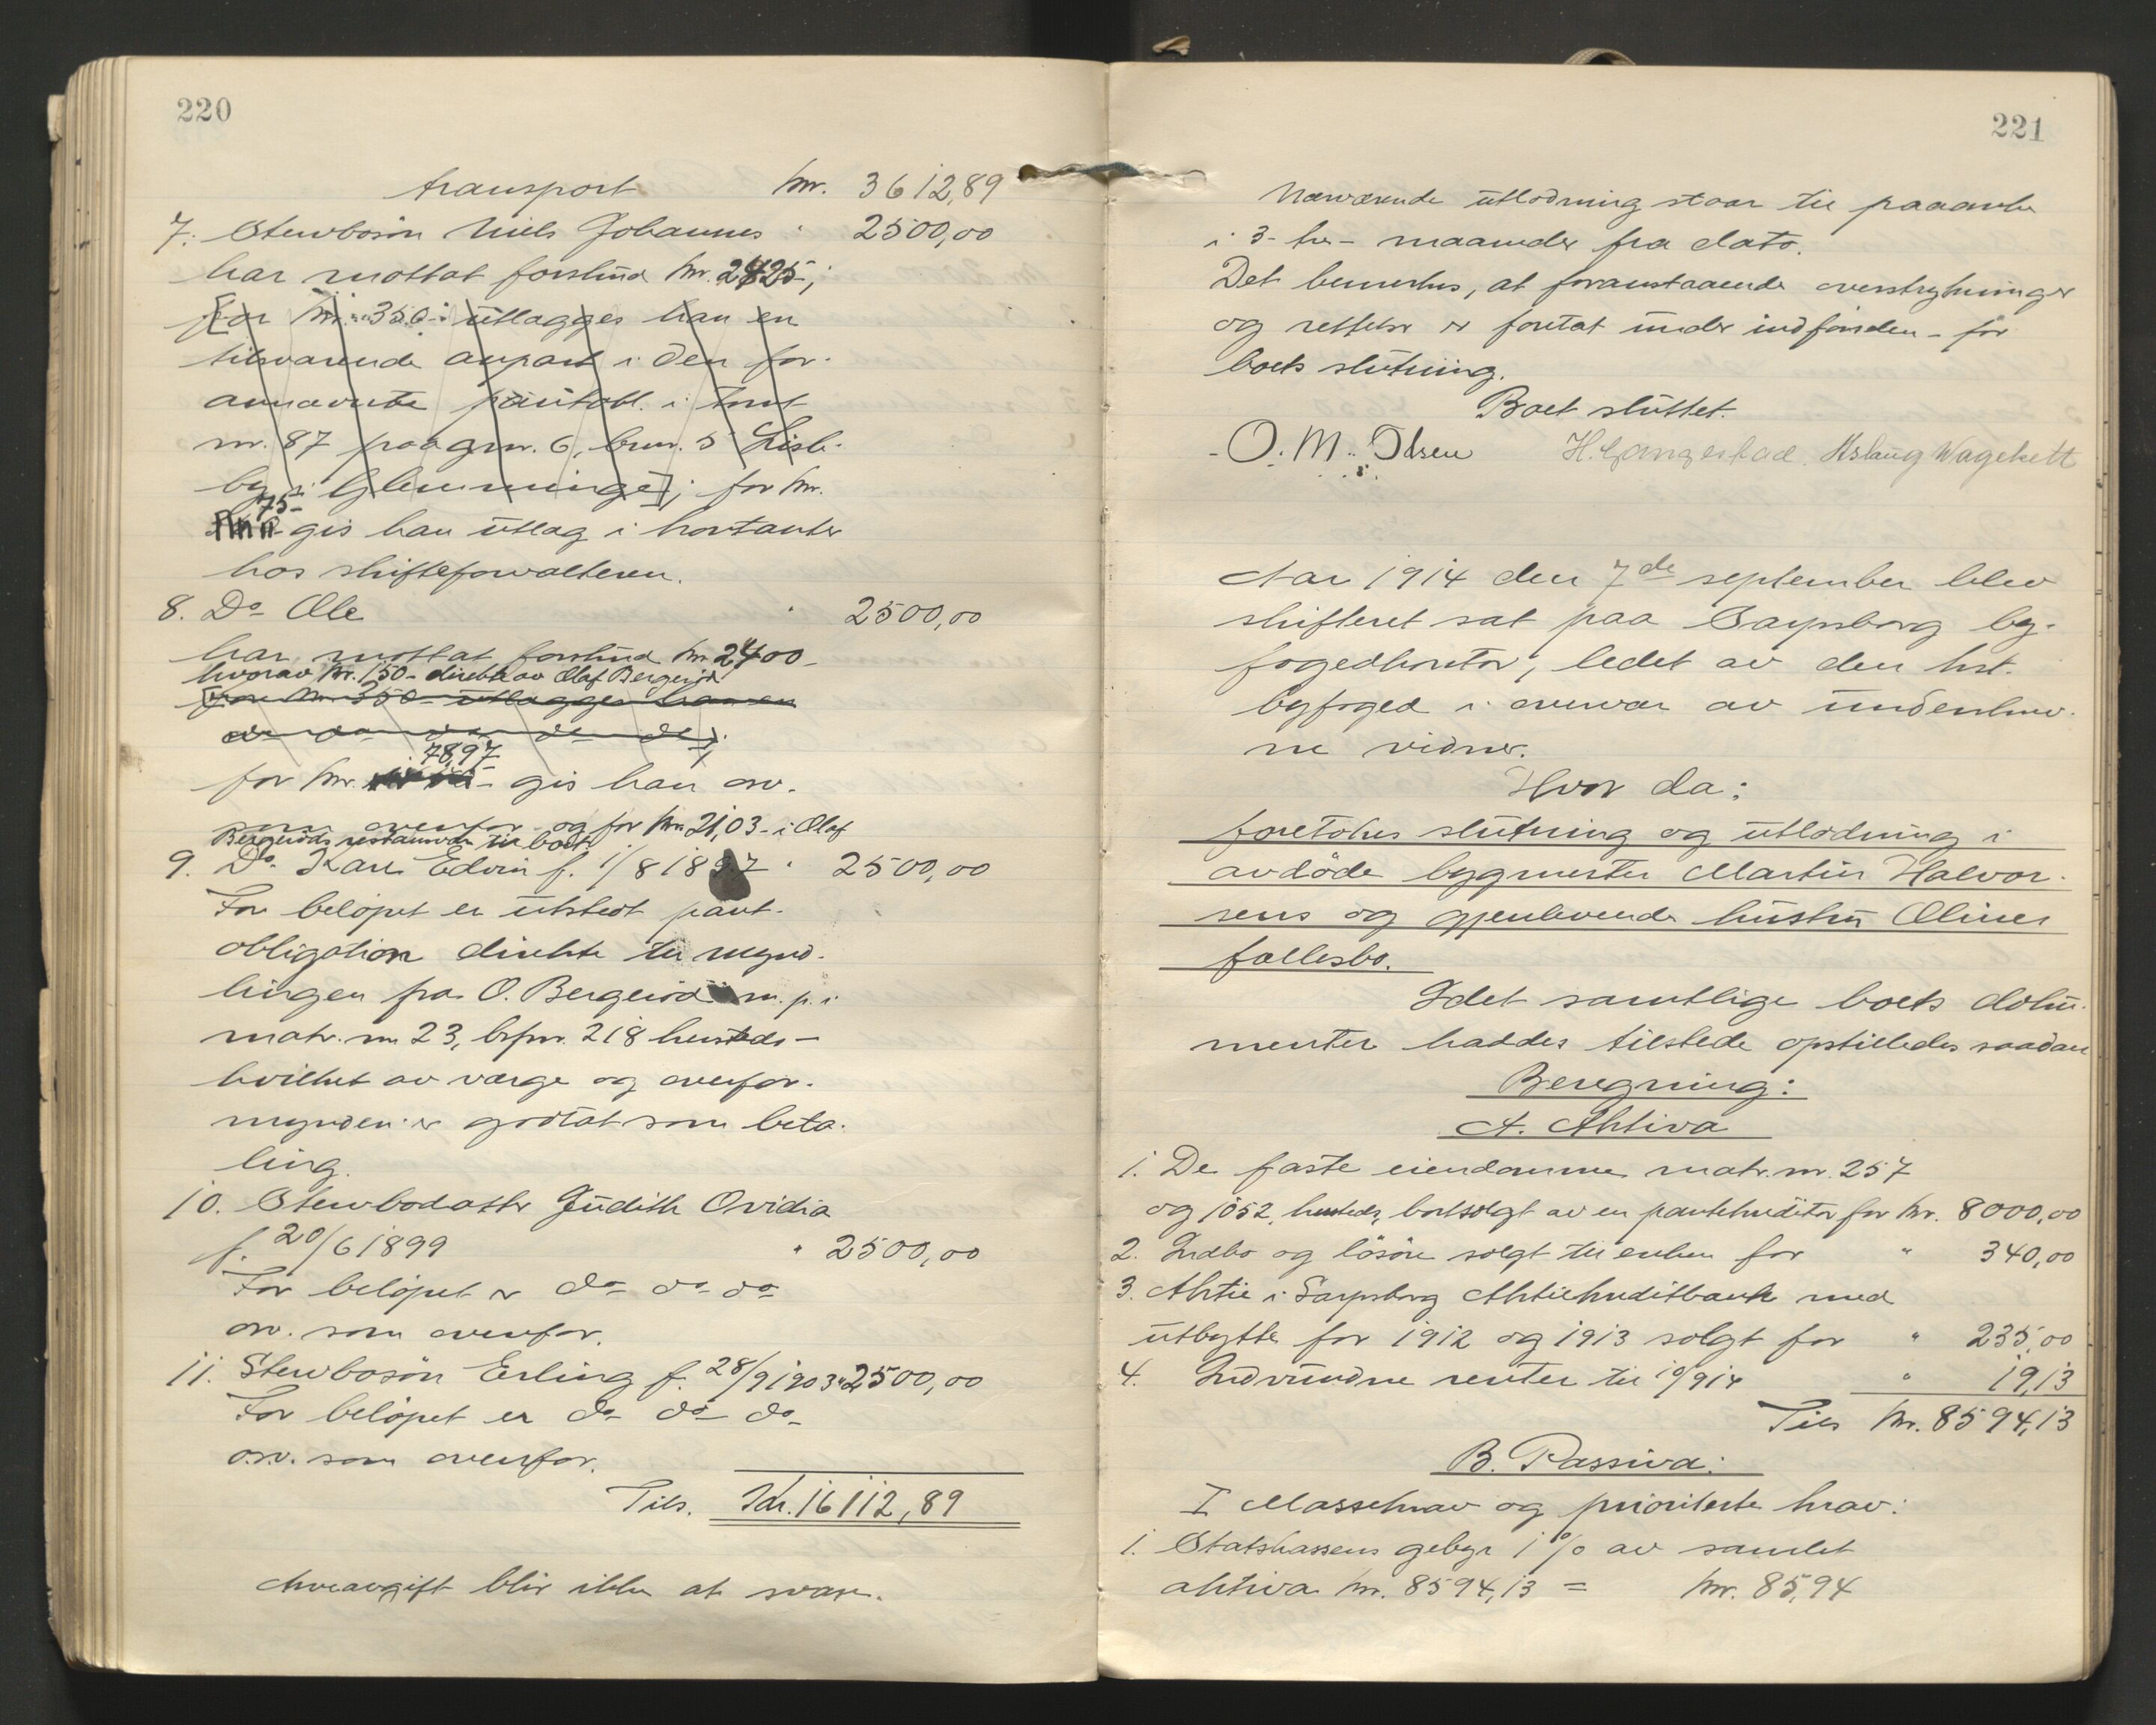 220
transport kr. 3612,89
7. Stervbosön Niels Johannes " 2500,00
har mottat forskud kr. 2425,-;
[for kr. 350.- utlægges han en
tilsvarende anpart i den for-
annævnte pantobl. i tomt
nr. 87 paa gnr. 6, brnr. 5 Lisle-
by i Glemminge]; for kr.
75-
gis han utlag i kontanter
hos skifteforvalteren.
8. Do Ole " 2500,00
har mottat forskud kr. 2400-
hvorav kr. 150- direkte av Olaf Bergerød
[for kr. 350- utlægges han en
do do do do do]
78,97
for kr. - gis han ov.
som ovenfor og for kr. 21,03- i Olaf
Bergeröds restanse til boet.
9. Do. Karl Edvin f. 1/8 1897 " 2500,00
For belöpet er utstedt pant-
obligation direkte til mynd-
lingen fra O. Bergeröd m. p. i
matr. nr 23, brfnr. 218 hersteds-
hvilket av verge og overfor-
mynderi er godtat som beta-
ling.
10. Stervbodatter Judith Ovidia
f. 20/6 1899 " 2500,00
For belöpet er do do do
ov. som ovenfor.
11. Stervbosön Erling f. 28/9 1903 " 2500,00
For belöpet er do do do
o.s.v. som ovenfor.
Tils. Kr. 16112,89
Arveavgift blir ikke at svare.
221
Nærværende utlodning staar til paaanke
i 3- tre- maaneder fra dato.
Det bemerkes, at foranstaaende overstrykninger
og rettelser er foretat under indförselen - för
boets slutning.
Boet sluttet.
O. M. Olsen H. Langestad. Aslaug Wagelsett
Aar 1914 den 7de september blev
skifteret sat paa Sarpsborg by-
fogedkontor, ledet av den kst.
byfoged i overvær av underskrev-
ne vidner.
Hvor da:
foretokes slutning og utlodning i
avdöde bygmester Martin Halvor-
sens og gjenlevende hustru Olines
fællesbo.
Idet samtlige boets doku-
menter haddes tilstede opstilledes saadan
Beregning:
A. Aktiva
1. De faste eiendomme matr. nr. 257
og 1052, hersteds, bortsolgt av en pantekreditor for kr. 8000,00
2. Indbo og lösöre solgt til enken for " 340,00
3. Aktie i Sarpsborg Aktiekreditbank med
utbytte for 1912 og 1913 solgt for " 235,00
4. Indvundne renter til 10/9 14 " 19,13
Tils kr. 8594,13
B. Passiva:
I Massekrav og prioriterte krav:
1. Statskassens gebyr 1 % av samlet
aktiva kr. 8594,13 = kr. 85,94